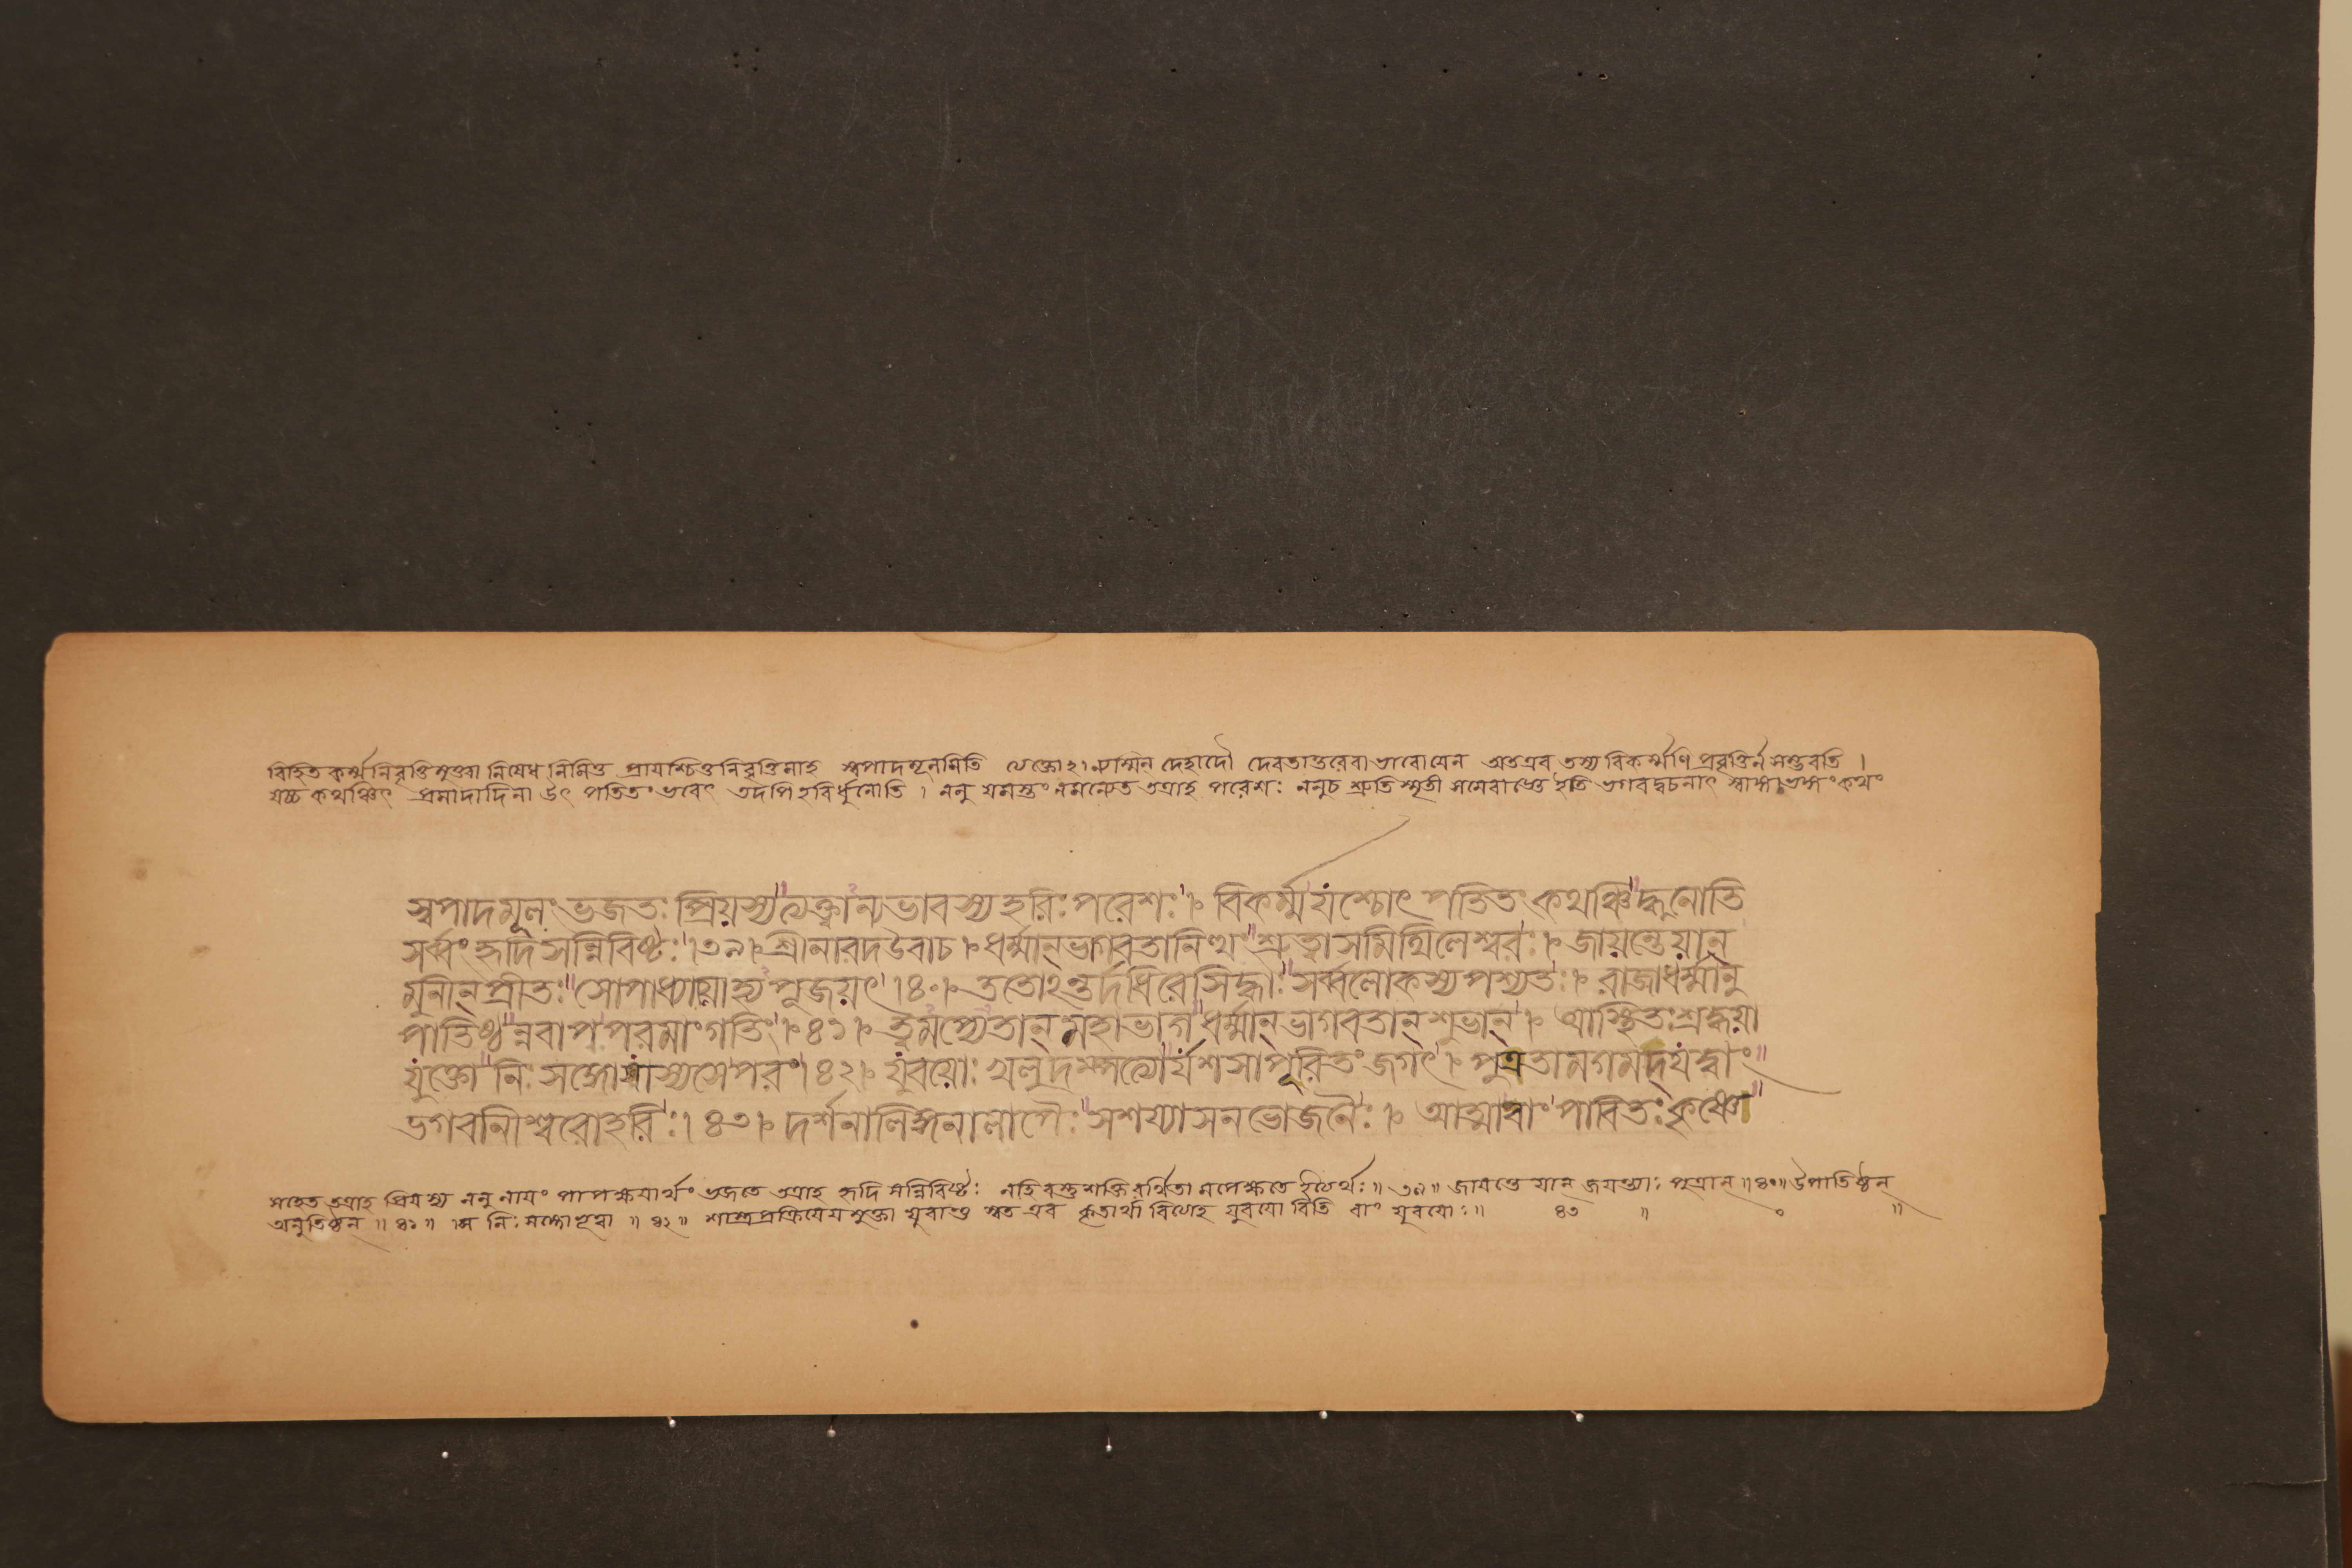 বিহিত কর্ম্মনিবৃত্তিমুক্ত্বা নিষেধ নিমিত্ত প্রায়শ্চিত্তনিবৃত্তিমাহ স্বপাদমূলমিতি ত্যক্তোঽন্যস্মিন্ দেহাদৌ দেবতান্তরেবা ভাবোযেন অতএব তস্য বিকর্ম্মণি প্রবৃত্তির্ন সম্ভবতি ।
যচ্চ কথঞ্চিৎ প্রমাদাদিনা উৎ পতিতং ভবেৎ তদপি হরির্ধুনোতি । ননু যমস্তং নমন্যেত তত্রাহ পরেশঃ ননুচ শ্রুতি স্মৃতী মমৈবাজ্ঞে ইতি ভগবদ্বচনাৎ স্বাজ্ঞাভঙ্গং কথং
স্বপাদমূলং ভজতঃ প্রিয়স্য ত্যক্তান্যভাবস্য হরিঃ পরেশঃ । বিকর্ম্ম যচ্চোৎ পতিতং কথঞ্চিদ্ধুনোতি
সর্ব্বং হৃদি সন্নিবিষ্টঃ ।৩৯। শ্রীনারদ উবাচ । ধর্ম্মান্ ভাগবতানিত্থং শ্রুত্বাস মিথিলেশ্বরঃ । জায়ন্তেয়ান্
মুনীন্ প্রীতঃ সোপাধ্যায়োহ্য পূজয়ৎ ।৪০। ততোঽন্তর্দধিরে সিদ্ধাঃ সর্ব্বলোকস্য পশ্যতঃ । রাজা ধর্ম্মানু
পাতিষ্ঠন্নবাপ পরমাং গতিং ।৪১। ত্বমপ্যেতান্ মহাভাগ ধর্ম্মান্ ভাগবতান্ শুভান্ । আস্থিতঃ শ্রদ্ধয়া
যুক্তো নিঃ সঙ্গো যাস্যসে পরং ।৪২। যুবয়োঃ খলু দম্পত্যোর্যশসা পূরিতং জগৎ । পুত্রতামগমদ্ যদ্বাং
ভগবানীশ্বরো হরিঃ । ৪৩। দর্শনালিঙ্গনালাপৈঃ সশয্যাসনভোজনৈঃ । আত্মাবাং পাবিতঃ কৃষ্ণে
সহেত তত্রাহ প্রিয়স্য ননু নায়ং পাপক্ষয়ার্থং ভজতে তত্রাহ হৃদি সন্নিবিষ্টঃ নহি বস্তুশক্তিরর্থিতা মপেক্ষতে ইত্যর্থঃ ॥ ৩৯ ॥ জায়ন্তে যান্ জয়ন্ত্যাঃ পুত্রান্ ॥৪০॥ উপাতিষ্ঠন্
অনুতিষ্ঠন্ ॥ ৪১ ॥ নিঃ সঙ্গো ভূত্বা ॥ ৪২ ॥ শাস্ত্রপ্রক্রিয়েয়মুক্তা যুবান্তু স্বত এব কৃতার্থা বিত্যাহ যুবয়ো রিতি বাং যুবয়োঃ ॥ ৪৩ ॥ ০ ॥